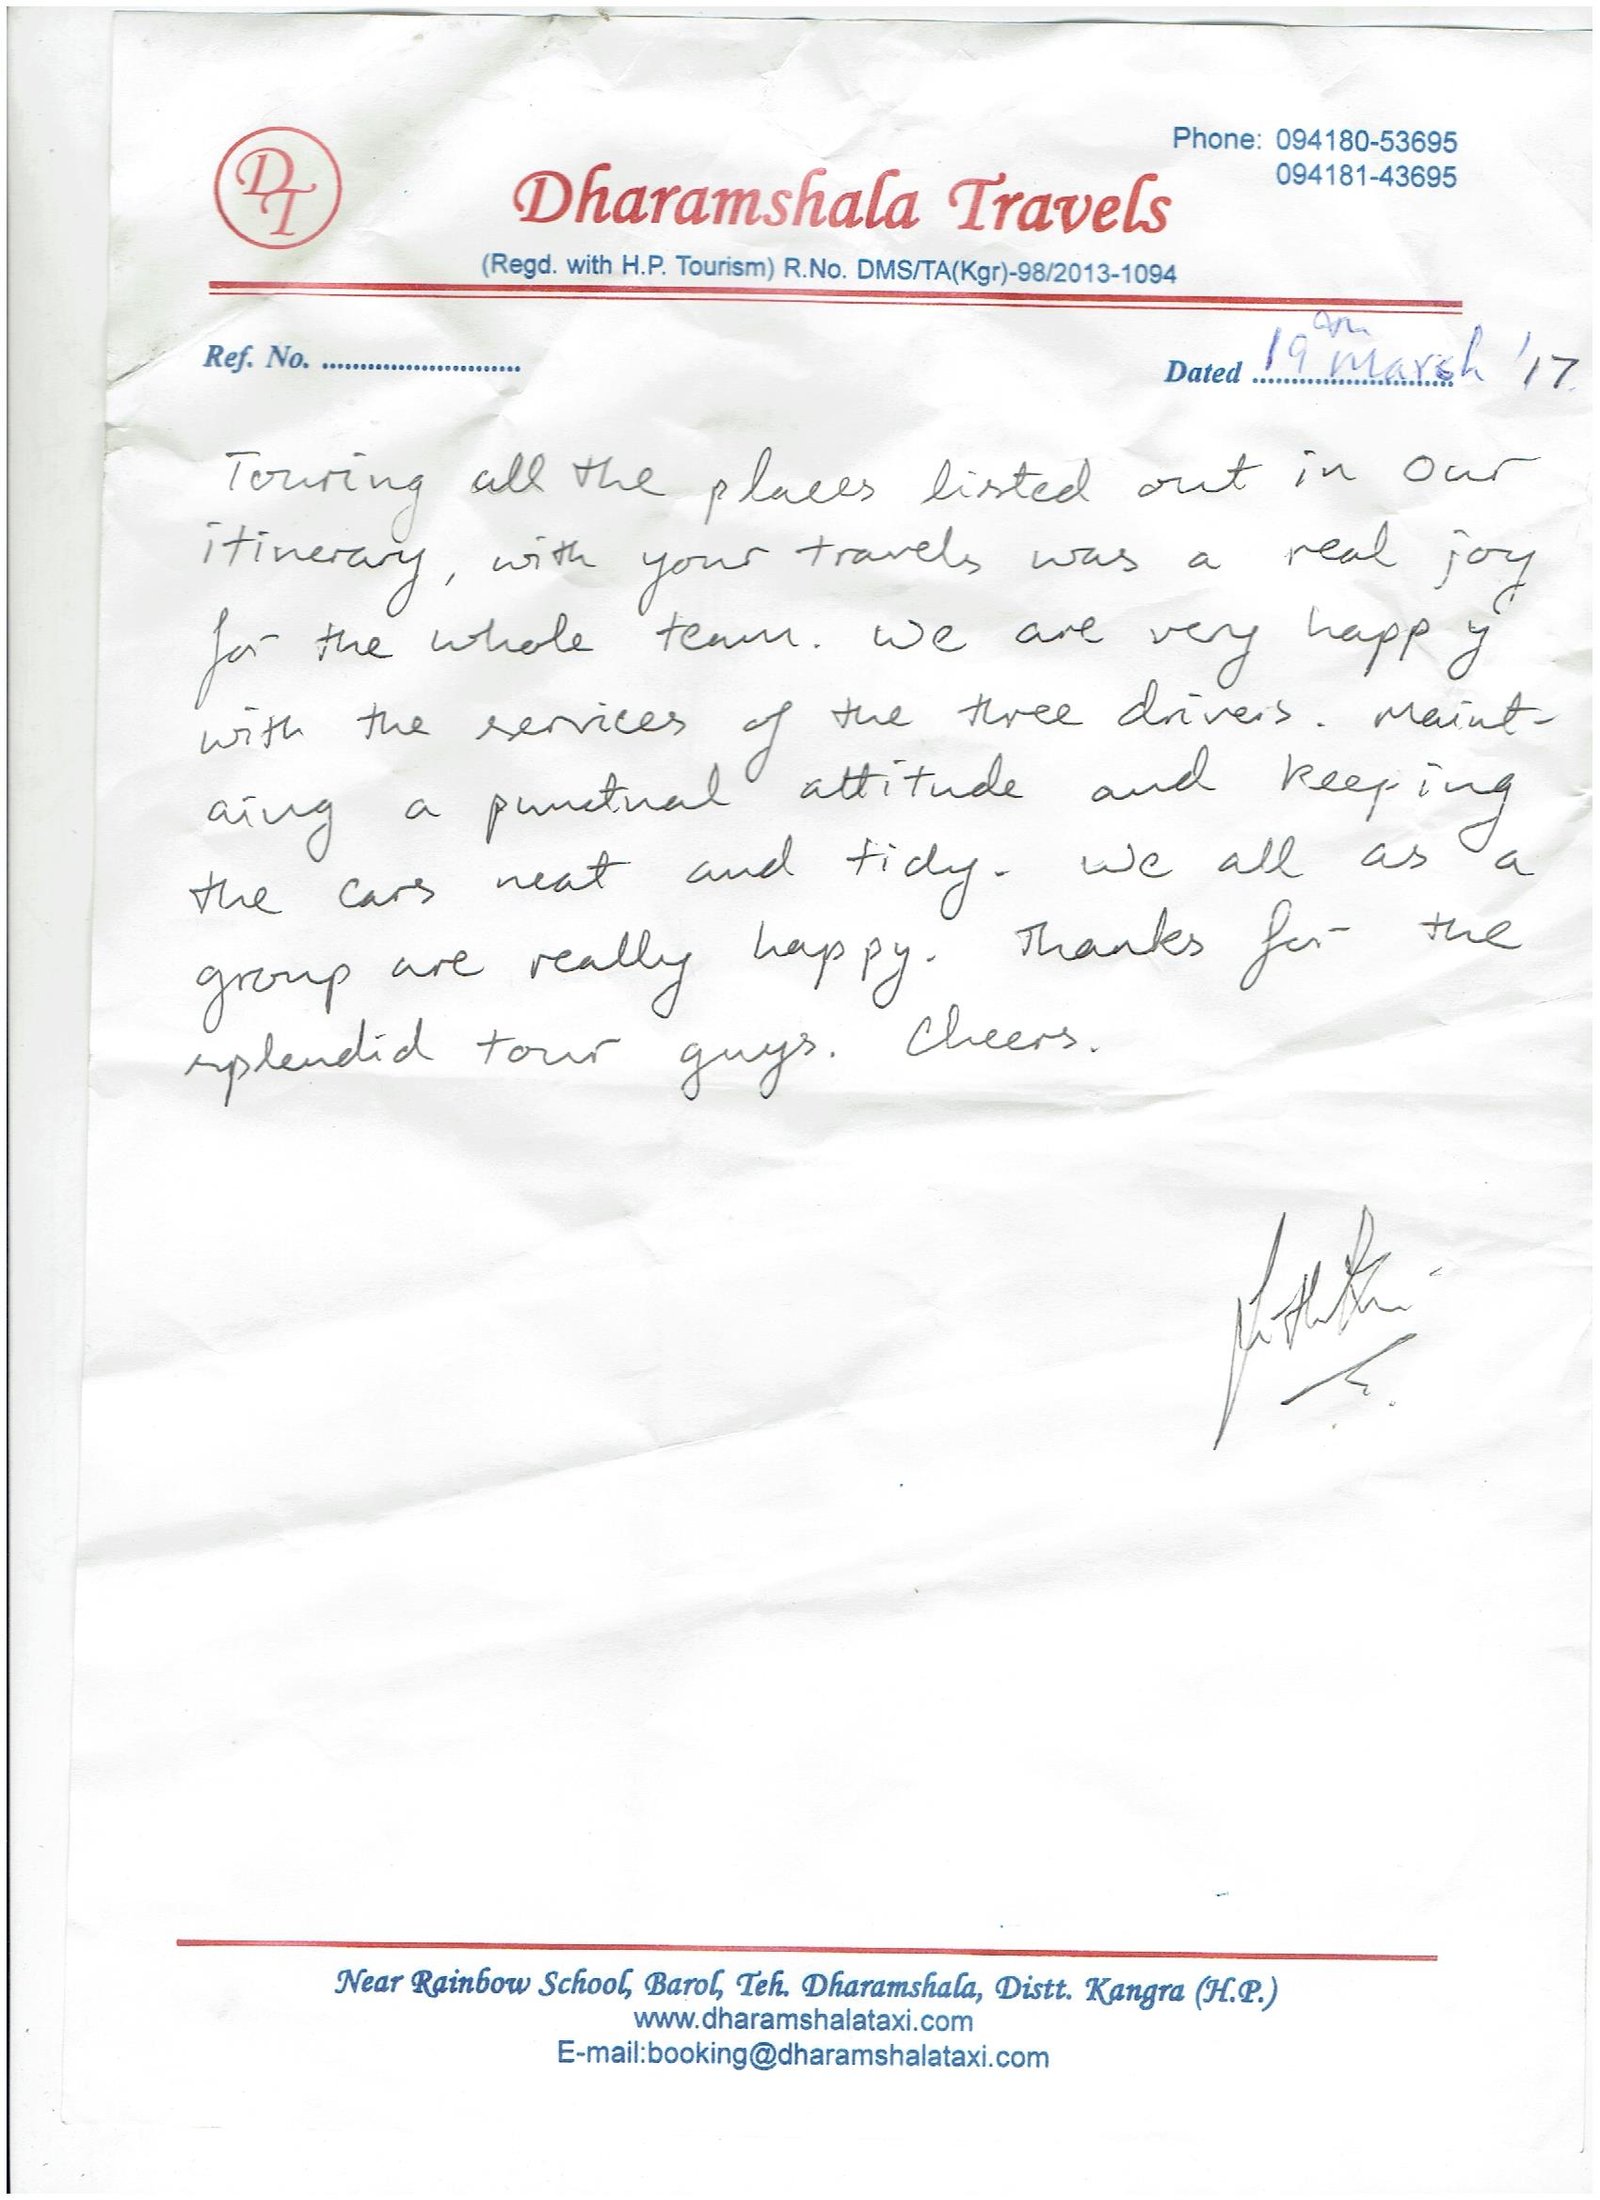 DT
Phone: 094180-53695
094181-43695
Dharamshala Travels
(Regd. with H.P. Tourism) R.No. DMS/TA(Kgr)-98/2013-1094
Ref. No. ..........................
Dated 19 March '17
Touring all the places listed out in our
itinerary, with your travels was a real joy
for the whole team. We are very happy
with the services of the three drivers. Maint-
aing a punctual attitude and keeping
the cars neat and tidy. We all as a
group are really happy. Thanks for the
splendid tour guys. Cheers.
Near Rainbow School, Barol, Teh. Dharamshala, Distt. Kangra (H.P.)
www.dharamshalataxi.com
E-mail:booking@dharamshalataxi.com